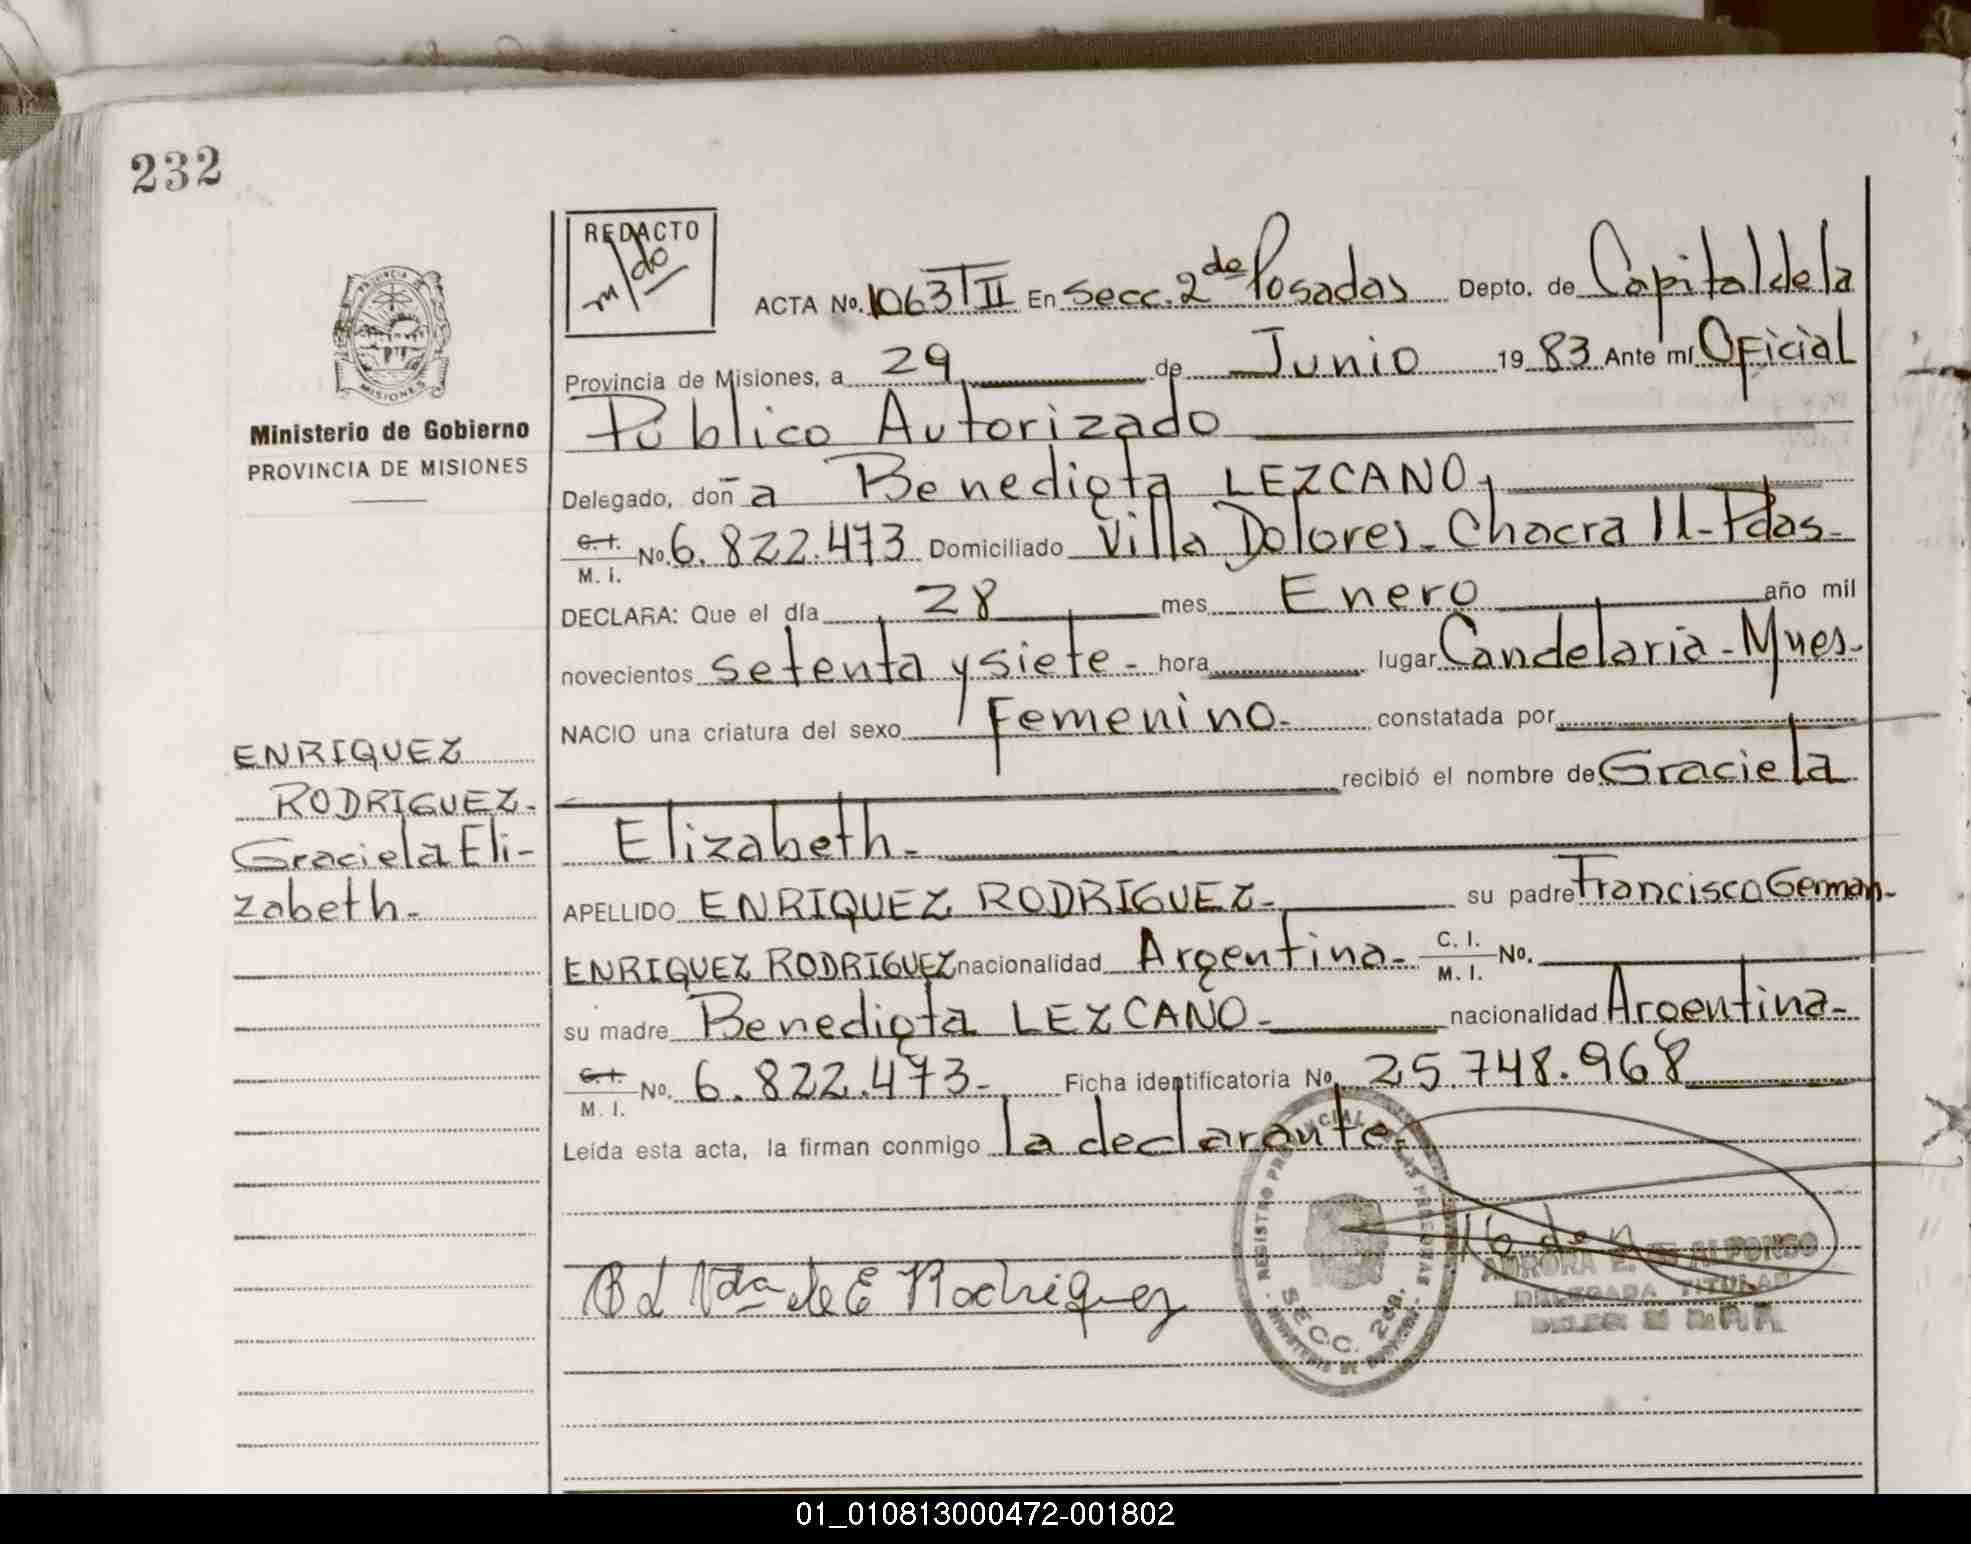 232
REDACTO
m/do
PROVINCIA
MISIONES
Ministerio de Gobierno
PROVINCIA DE MISIONES
ACTA No. 1063 TII En Secc. 2da Posadas Depto. de Capital de la
Provincia de Misiones, a 29 de Junio 1983 Ante mí Oficial
Público Autorizado
Delegado, doña Benedicta LEZCANO,
C.I. M.I. No. 6.822.473 Domiciliado Villa Dolores - Chacra 11 - Pdas -
DECLARA: Que el día 28 mes Enero año mil
novecientos setenta y siete - hora lugar Candelaria - Mnes -
NACIO una criatura del sexo Femenino - constatada por
recibió el nombre de Graciela
Elizabeth -
APELLIDO ENRIQUEZ RODRIGUEZ - su padre Francisco German -
ENRIQUEZ RODRIGUEZ nacionalidad Argentina - C.I. M.I. No.
su madre Benedicta LEZCANO - nacionalidad Argentina -
C.I. M.I. No. 6.822.473 - Ficha identificatoria No. 25.748.968
Leída esta acta, la firman conmigo la declarante -
ENRIQUEZ
RODRIGUEZ -
Graciela Eli-
zabeth -
B L Vda de E Rodriguez
REGISTRO PROVINCIAL DE LAS PERSONAS
SECC. 2da.
AURORA E. DE ALFONSO
DELEGADA TITULAR
01_010813000472-001802